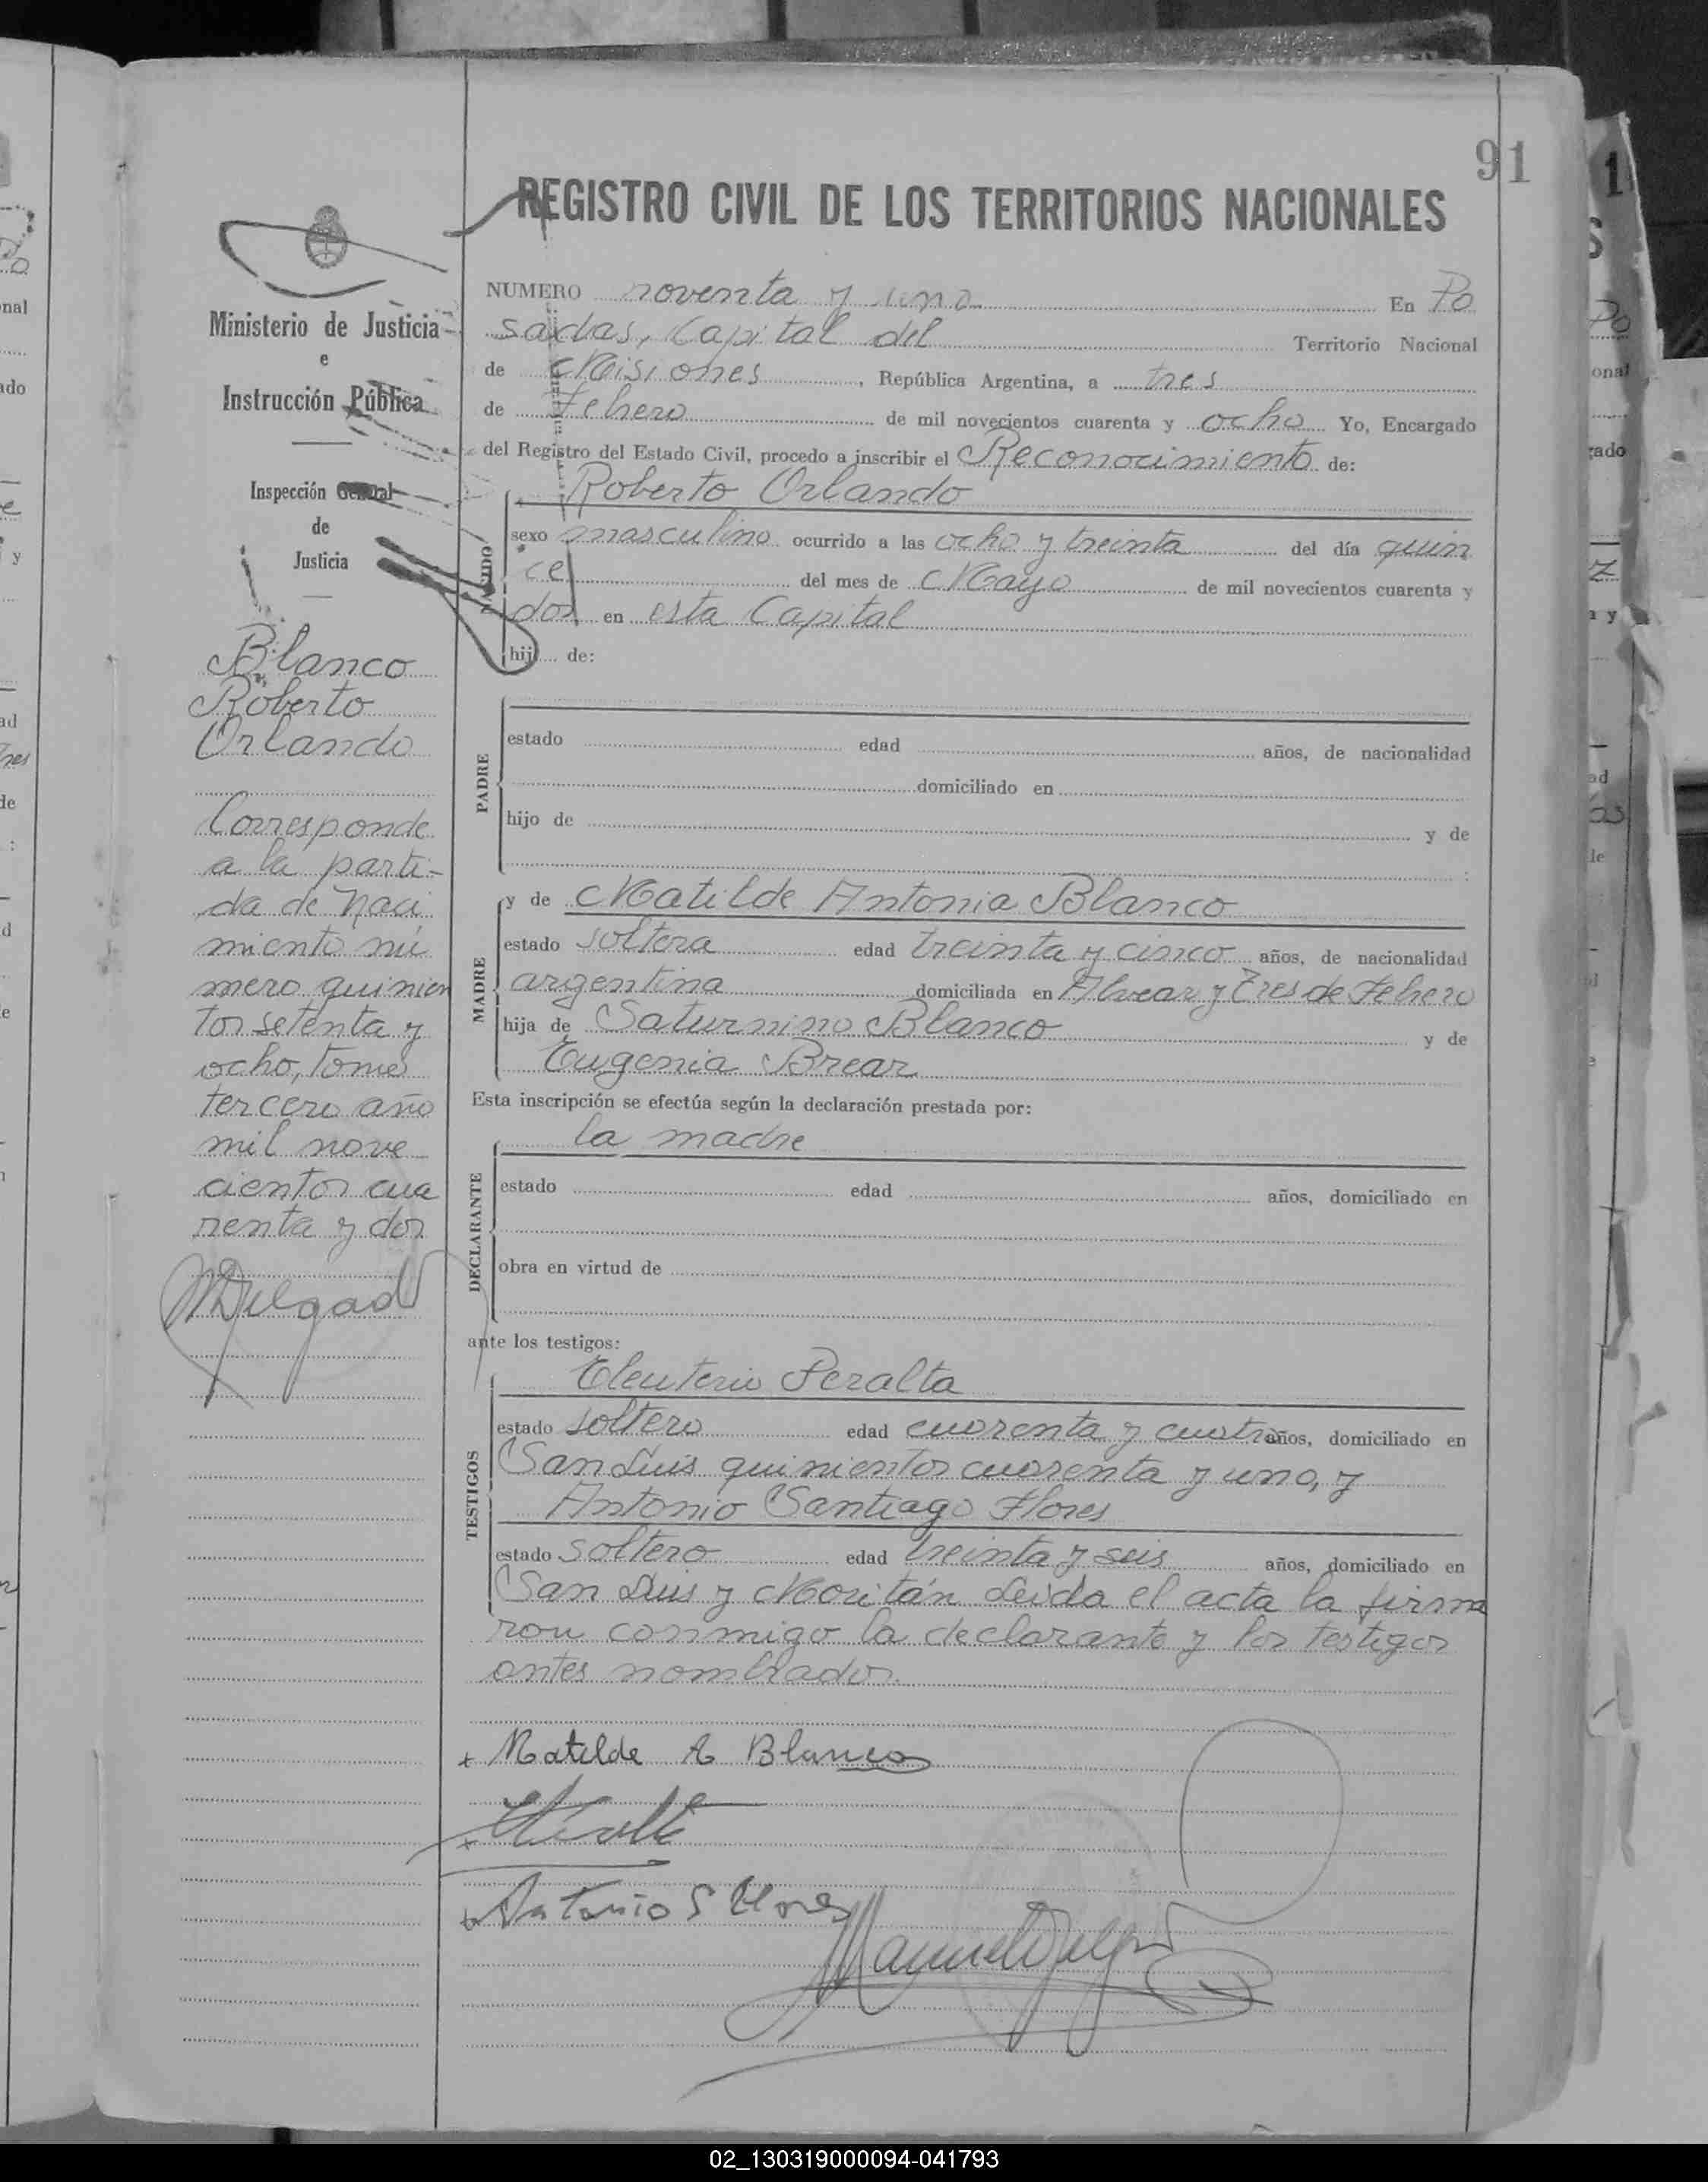 91
REGISTRO CIVIL DE LOS TERRITORIOS NACIONALES
Ministerio de Justicia
e
Instrucción Pública
Inspección General
de
Justicia
Blanco
Roberto
Orlando
Corresponde
a la parti-
da de Naci
miento nú
mero quinien
tos setenta y
ocho, tomo
tercero año
mil nove
cientos cua
renta y dos
MDelgado
NUMERO noventa y uno En Po
sadas, Capital del Territorio Nacional
de Misiones, República Argentina, a tres
de Febrero de mil novecientos cuarenta y ocho Yo, Encargado
del Registro del Estado Civil, procedo a inscribir el Reconocimiento de:
Roberto Orlando
NACIDO
sexo masculino ocurrido a las ocho y treinta del día quin
ce del mes de Mayo de mil novecientos cuarenta y
dos en esta Capital
hij de:
PADRE
estado edad años, de nacionalidad
domiciliado en
hijo de y de
:
MADRE
y de Matilde Antonia Blanco
estado soltera edad treinta y cinco años, de nacionalidad
argentina domiciliada en Alvear y Tres de Febrero
hija de Saturnino Blanco y de
Eugenia Brear
Esta inscripción se efectúa según la declaración prestada por:
la madre
DECLARANTE
estado edad años, domiciliado en
obra en virtud de
ante los testigos:
Eleuterio Peralta
TESTIGOS
estado soltero edad cuarenta y cuatro años, domiciliado en
San Luis quinientos cuarenta y uno, y
Antonio Santiago Flores
estado soltero edad treinta y seis años, domiciliado en
San Luis y Moritán Leida el acta la firma
ron conmigo la declarante y los testigos
antes nombrados.
+ Matilde A Blanco
+
+ Antonio S Flores
Manuel Delg
02_130319000094-041793